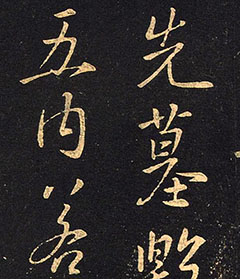 先墓
五内若